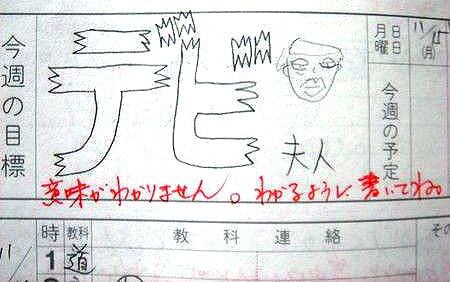 今週の目標
デビ
夫人
月日
曜日
(月)
今週の予定
意味がわかりません。わかるように書いてね。
時 教科 教科連絡 その
1 道